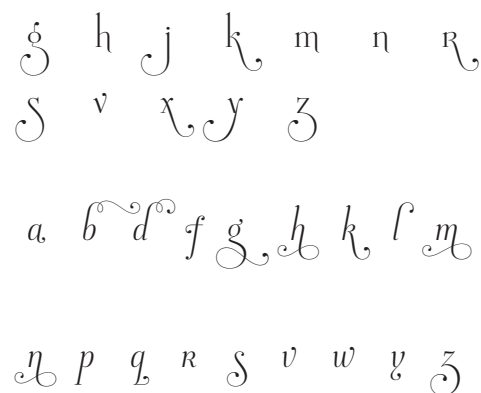 g h j k m n R
s v x y z
a b d f g h k l m
n p q R s v w y z